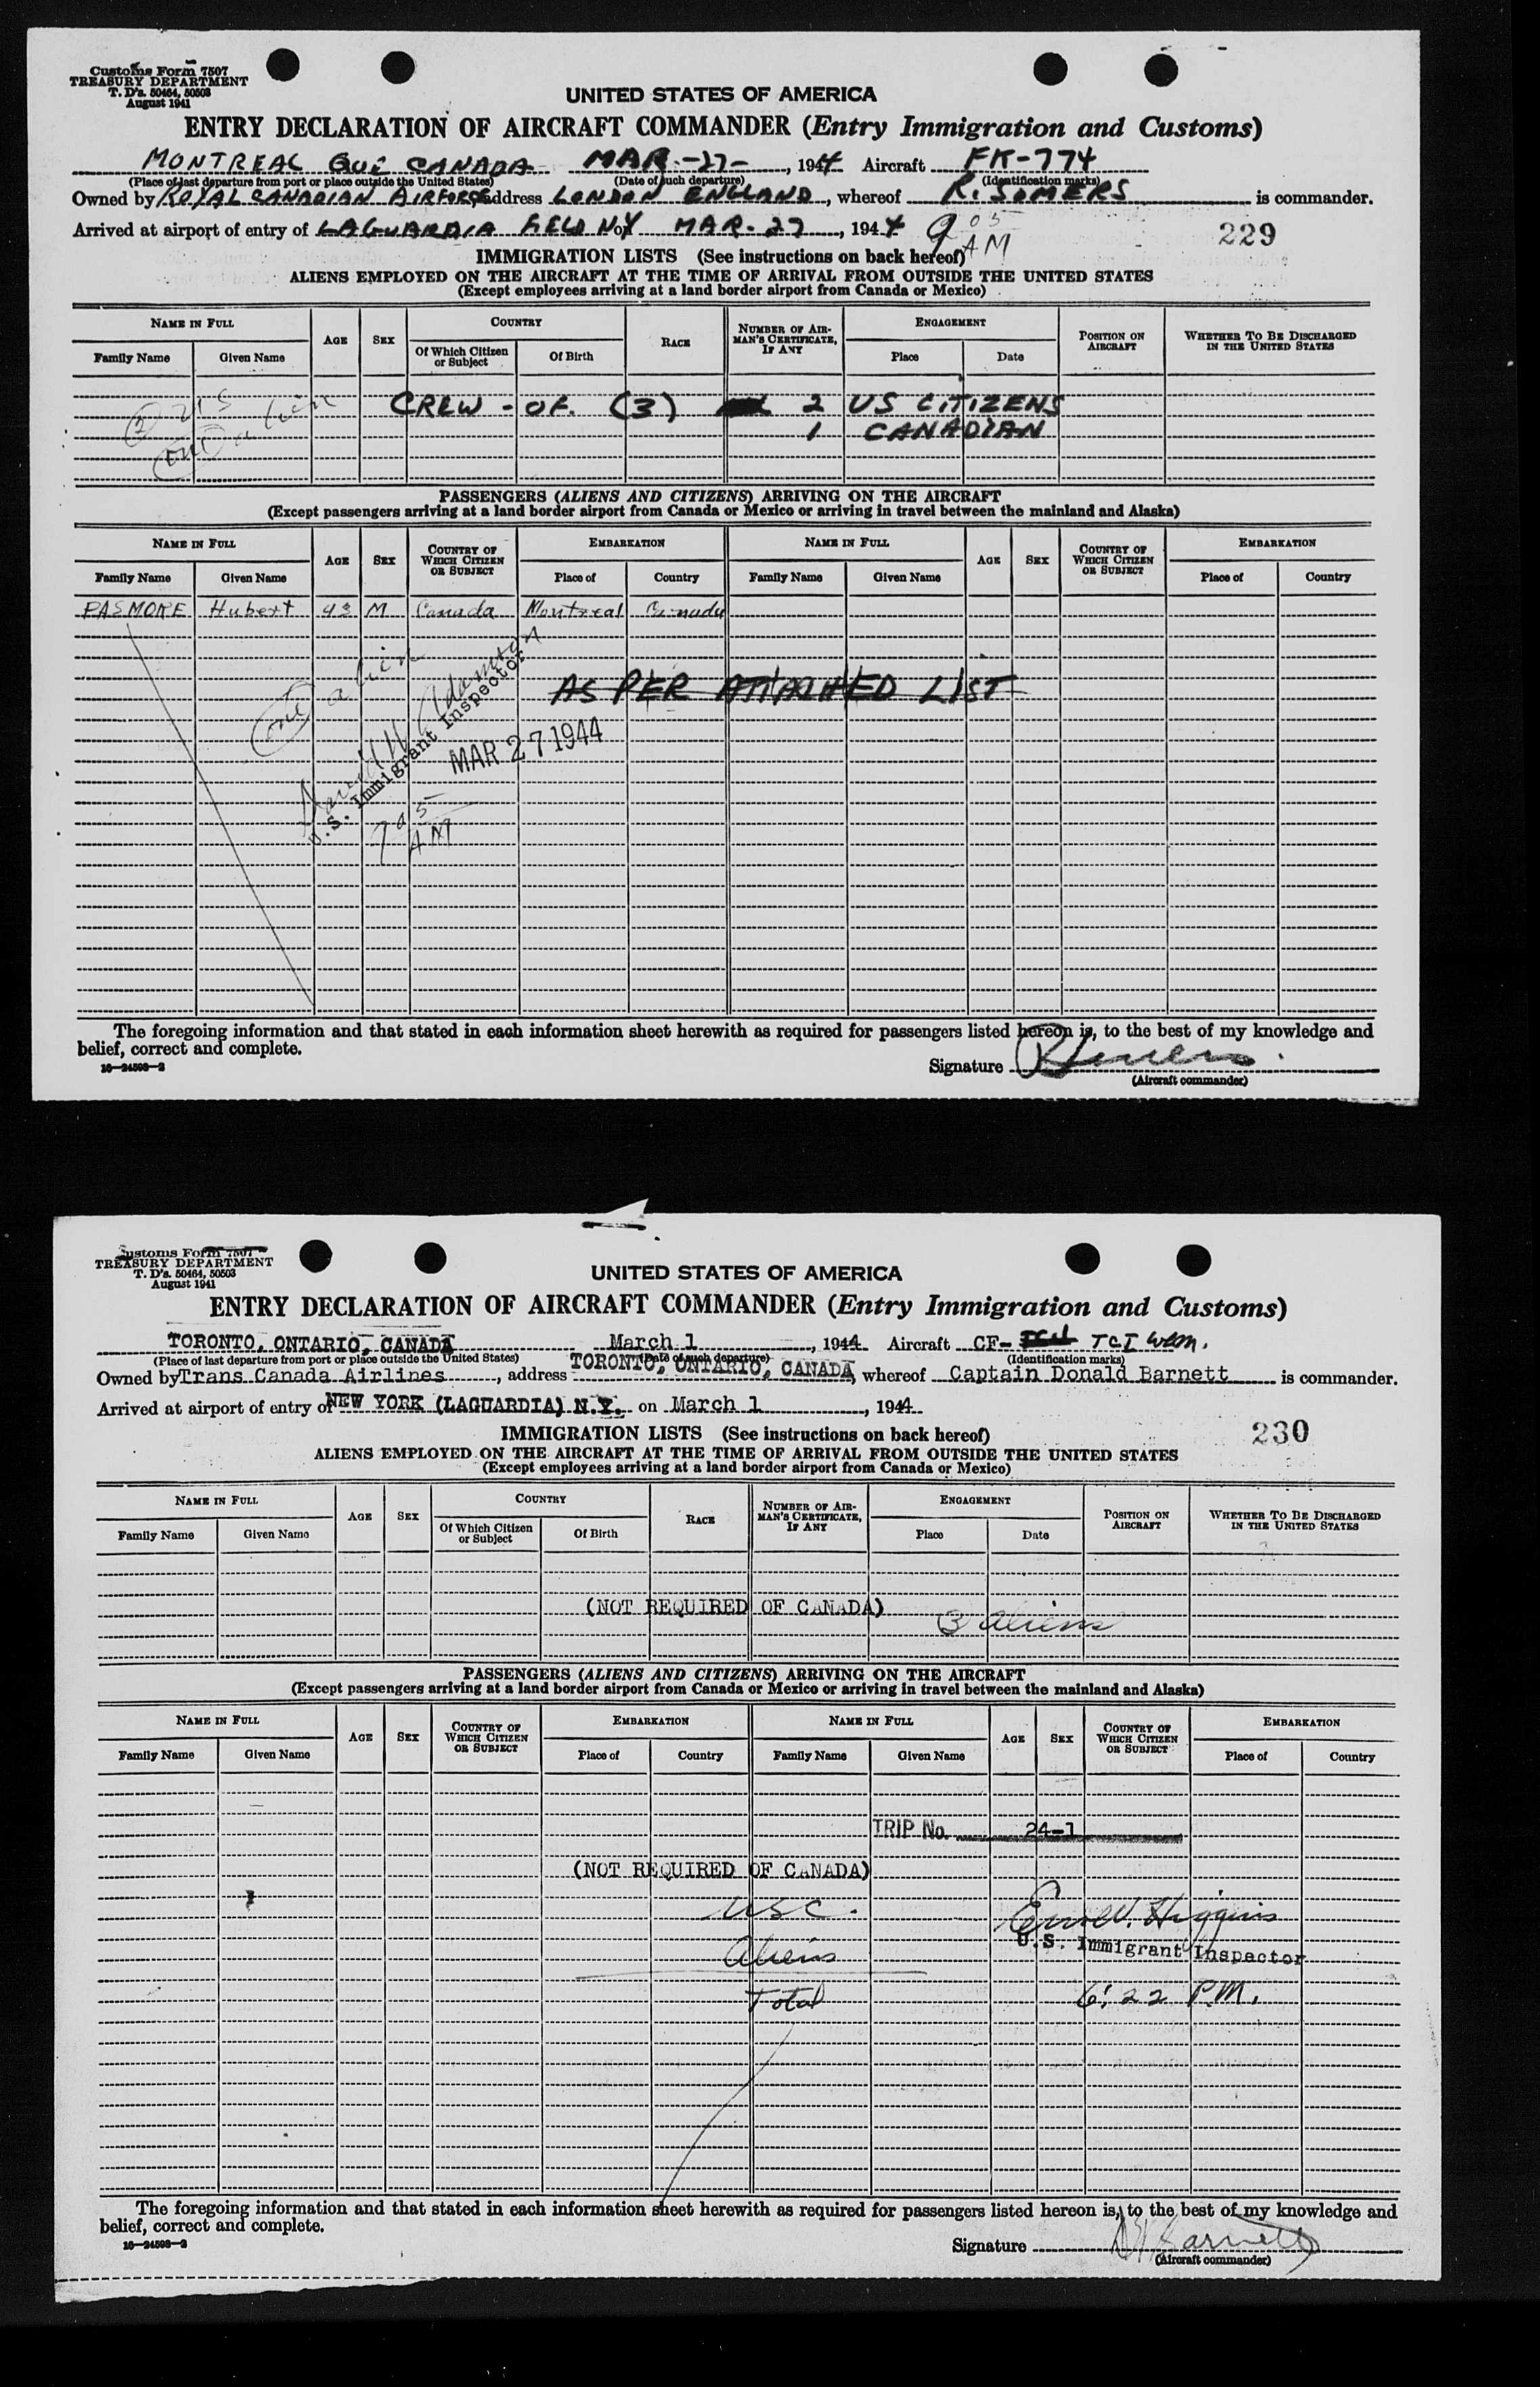 Customs Form 7507
TREASURY DEPARTMENT
T. D's. 50464, 50503
August 1941
UNITED STATES OF AMERICA
ENTRY DECLARATION OF AIRCRAFT COMMANDER (Entry Immigration and Customs)
MONTREAL QUE CANADA MAR.-27-, 1944 Aircraft FK-774
(Place of last departure from port or place outside the United States) (Date of such departure) (Identification marks)
Owned by ROYAL CANADIAN AIRFORCE, address LONDON ENGLAND, whereof R. SOMERS is commander.
Arrived at airport of entry of LAGUARDIA FIELD NY on MAR. 27, 1944 9 05 AM
229
IMMIGRATION LISTS (See instructions on back hereof)
ALIENS EMPLOYED ON THE AIRCRAFT AT THE TIME OF ARRIVAL FROM OUTSIDE THE UNITED STATES
(Except employees arriving at a land border airport from Canada or Mexico)
NAME IN FULL AGE SEX COUNTRY RACE NUMBER OF AIRMAN'S CERTIFICATE, IF ANY ENGAGEMENT POSITION ON AIRCRAFT WHETHER TO BE DISCHARGED IN THE UNITED STATES
Family Name Given Name Of Which Citizen or Subject Of Birth Place Date
CREW - OF. (3) 2 US CITIZENS
1 CANADIAN
alien
PASSENGERS (ALIENS AND CITIZENS) ARRIVING ON THE AIRCRAFT
(Except passengers arriving at a land border airport from Canada or Mexico or arriving in travel between the mainland and Alaska)
NAME IN FULL AGE SEX COUNTRY OF WHICH CITIZEN OR SUBJECT EMBARKATION NAME IN FULL AGE SEX COUNTRY OF WHICH CITIZEN OR SUBJECT EMBARKATION
Family Name Given Name Place of Country Family Name Given Name Place of Country
PASMORE Hubert 43 M Canada Montreal Canada
one alien
AS PER ATTACHED LIST
U.S. Immigrant Inspector
MAR 27 1944
9 05 AM
The foregoing information and that stated in each information sheet herewith as required for passengers listed hereon is, to the best of my knowledge and
belief, correct and complete.
16—24508—2
Signature R Somers
(Aircraft commander)
Customs Form 7507
TREASURY DEPARTMENT
T. D's. 50464, 50503
August 1941
UNITED STATES OF AMERICA
ENTRY DECLARATION OF AIRCRAFT COMMANDER (Entry Immigration and Customs)
TORONTO, ONTARIO, CANADA March 1, 1944 Aircraft CF- TCI
(Place of last departure from port or place outside the United States) (Date of such departure) (Identification marks)
Owned by Trans Canada Airlines, address TORONTO, ONTARIO, CANADA, whereof Captain Donald Barnett is commander.
Arrived at airport of entry of NEW YORK (LAGUARDIA) N.Y. on March 1, 1944
230
IMMIGRATION LISTS (See instructions on back hereof)
ALIENS EMPLOYED ON THE AIRCRAFT AT THE TIME OF ARRIVAL FROM OUTSIDE THE UNITED STATES
(Except employees arriving at a land border airport from Canada or Mexico)
NAME IN FULL AGE SEX COUNTRY RACE NUMBER OF AIRMAN'S CERTIFICATE, IF ANY ENGAGEMENT POSITION ON AIRCRAFT WHETHER TO BE DISCHARGED IN THE UNITED STATES
Family Name Given Name Of Which Citizen or Subject Of Birth Place Date
(NOT REQUIRED OF CANADA)
3 aliens
PASSENGERS (ALIENS AND CITIZENS) ARRIVING ON THE AIRCRAFT
(Except passengers arriving at a land border airport from Canada or Mexico or arriving in travel between the mainland and Alaska)
NAME IN FULL AGE SEX COUNTRY OF WHICH CITIZEN OR SUBJECT EMBARKATION NAME IN FULL AGE SEX COUNTRY OF WHICH CITIZEN OR SUBJECT EMBARKATION
Family Name Given Name Place of Country Family Name Given Name Place of Country
TRIP No. 24-1
(NOT REQUIRED OF CANADA)
USC.
Higgins
U.S. Immigrant Inspector
Aliens
Total 6:22 P.M.
The foregoing information and that stated in each information sheet herewith as required for passengers listed hereon is, to the best of my knowledge and
belief, correct and complete.
16—24508—2
Signature Barnett
(Aircraft commander)